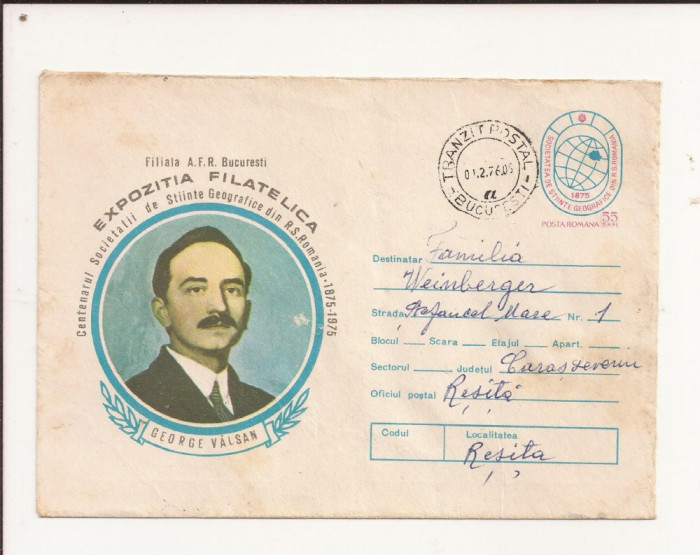 Filiala A.F.R. Bucuresti
EXPOZITIA FILATELICA
Centenarul Societatii de Stiinte Geografice din R.S.Romania-1875-1975
GEORGE VÂLSAN
TRANZIT POSTAL
01.2.76.05
a
BUCUREȘTI
SOCIETATEA DE STIINTE GEOGRAFICE DIN R.S. ROMANIA
1875
55
POSTA ROMANA BANI
Destinatar Familia
Weinberger
Strada Ștefan cel Mare Nr. 1
Blocul Scara Etajul Apart.
Sectorul Județul Caraș Severin
Oficiul poștal Reșița
Codul Localitatea
Reșița